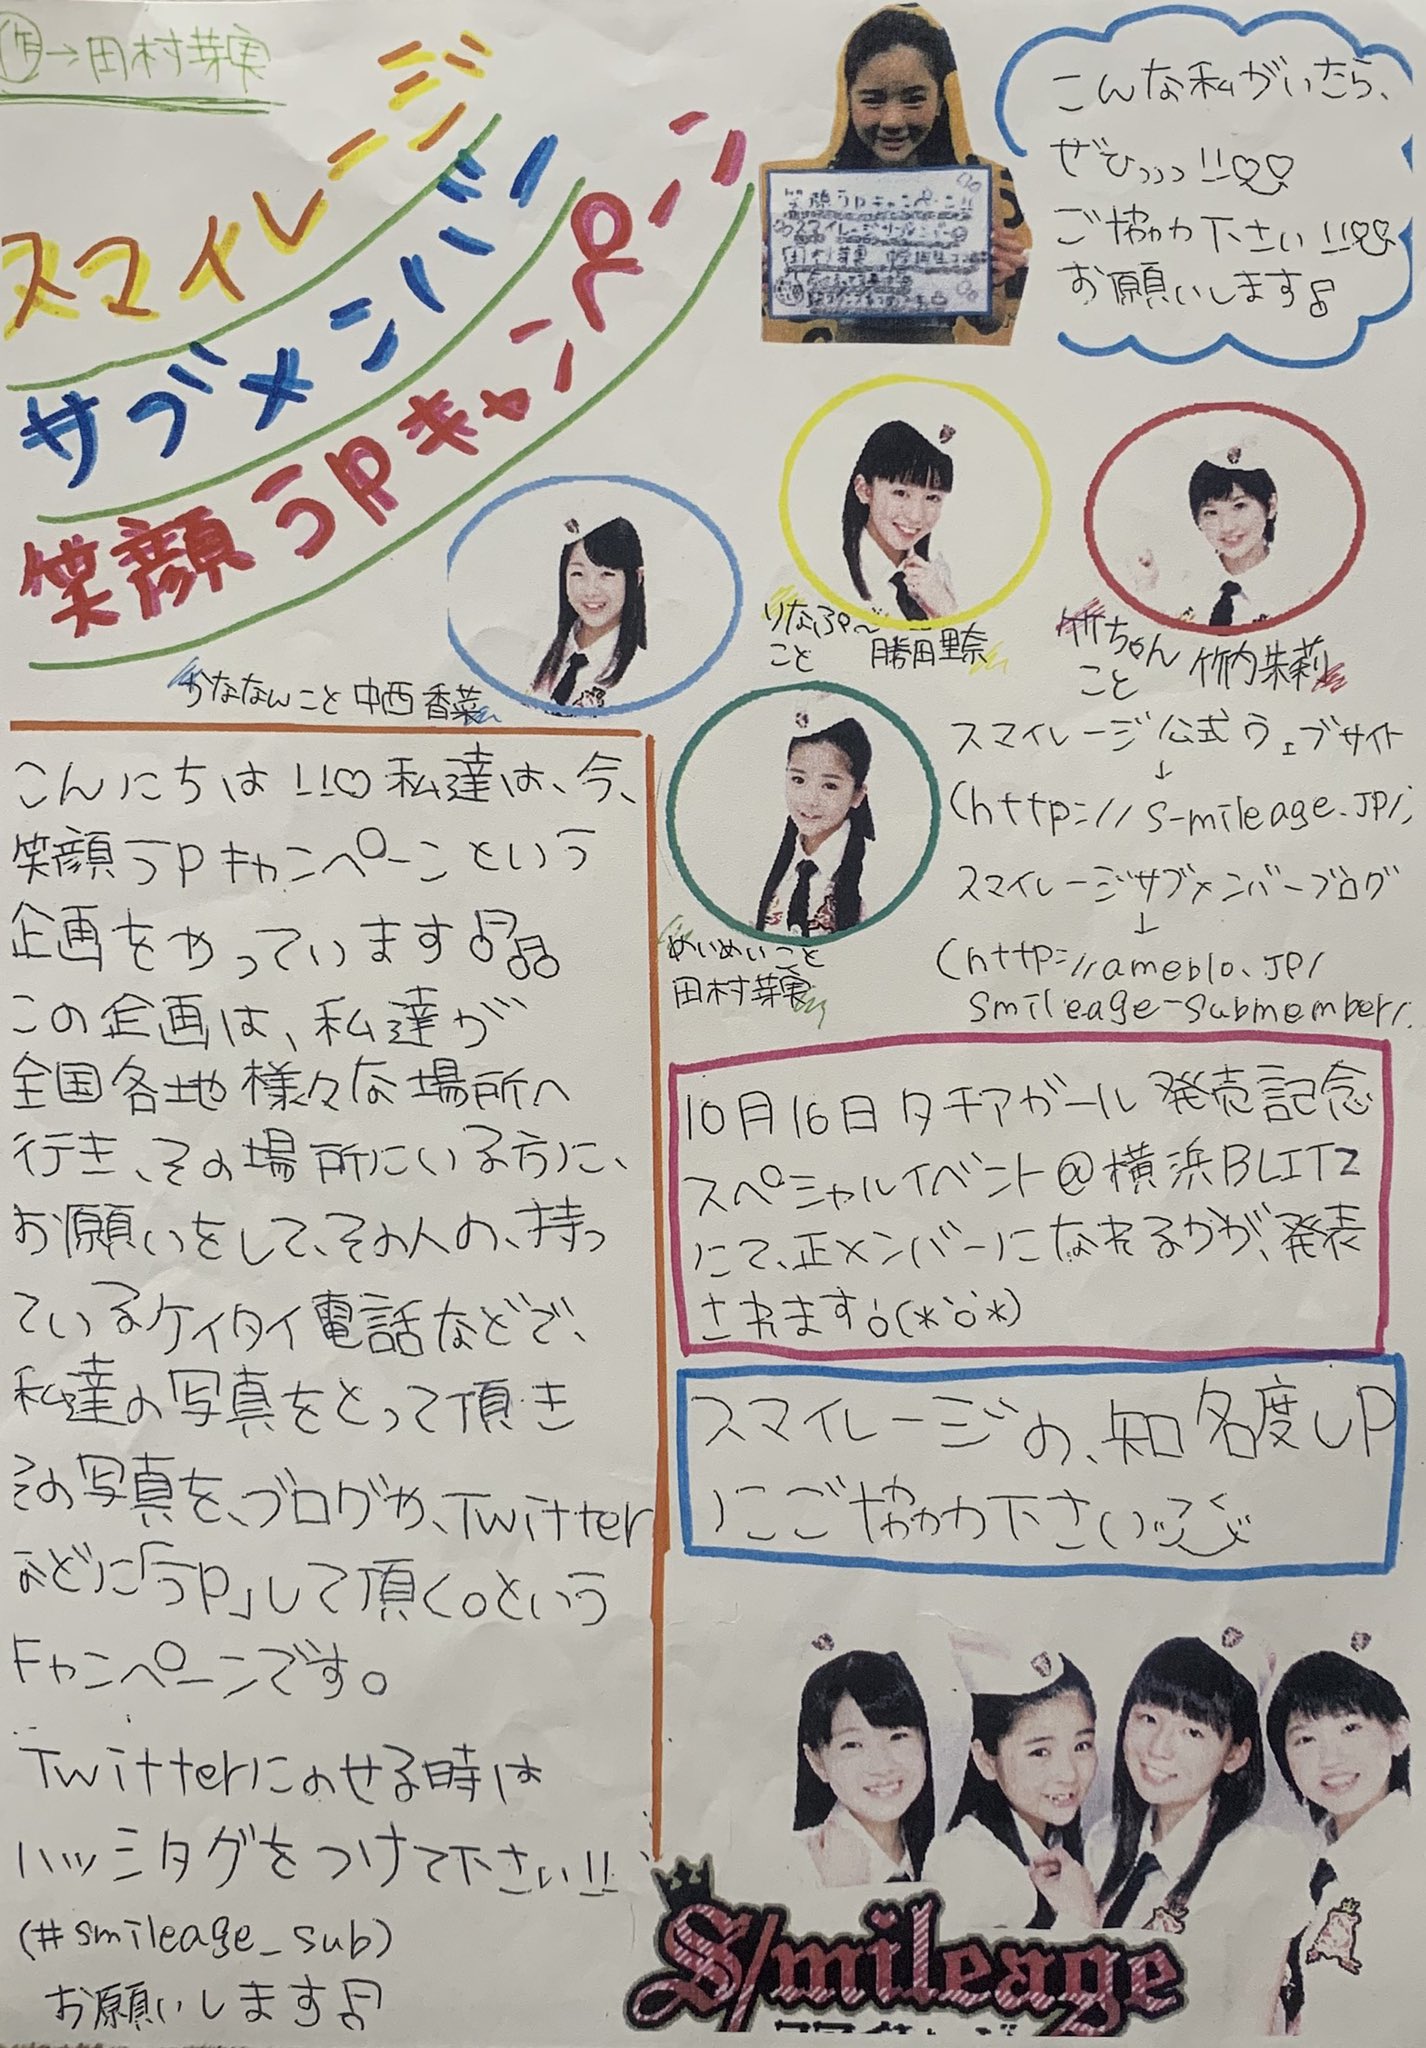 作→田村芽実
スマイレージ
サブメンバー
笑顔うpキャンペーン
笑顔うpキャンペーン!!
スマイレージサブメンバー
田村芽実
こんな私がいたら、
ぜひっっっ!!♡♡
ご協力下さい!!♡♡
お願いします♪
かななんこと中西香菜
りなぷ〜
こと 勝田里奈
竹ちゃん
こと 竹内朱莉
めいめいこと
田村芽実
スマイレージ公式ウェブサイト
↓
(http://s-mileage.jp/)
スマイレージサブメンバーブログ
↓
(http://ameblo.jp/
smileage-submember/)
こんにちは!!♡私達は、今、
笑顔うpキャンペーンという
企画をやっています♪♫
この企画は、私達が
全国各地様々な場所へ
行き、その場所にいる方に、
お願いをして、その人の、持っ
ているケイタイ電話などで、
私達の写真をとって頂き
その写真を、ブログや、Twitter
などに「うp」して頂く。という
キャンペーンです。
Twitterにのせる時は
ハッシュタグをつけて下さい!!
(#smileage_sub)
お願いします♪
10月16日タチアガール発売記念
スペシャルイベント@横浜BLITZ
にて、正メンバーになれるかが、発表
されます
スマイレージの、知名度UP
にご協力下さいッ
S/mileage